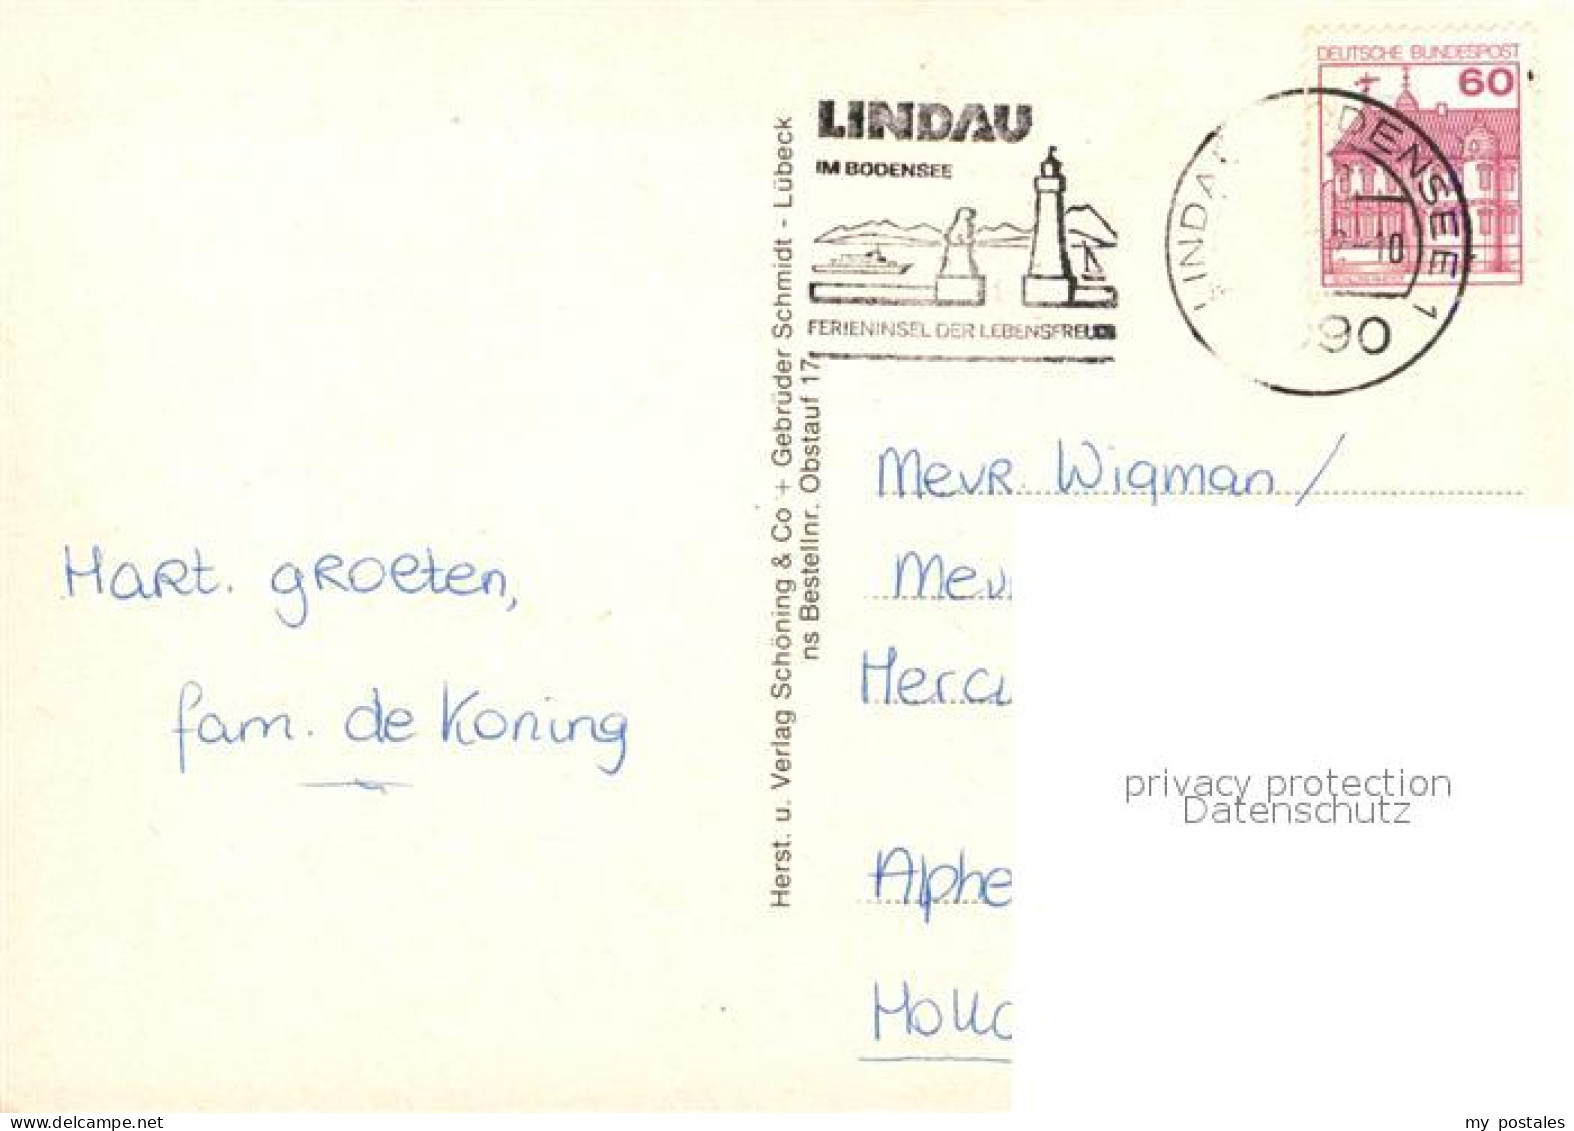 Hart. groeten,
fam. de Koning
Herst. u. Verlag Schöning & Co + Gebrüder Schmidt - Lübeck
ns Bestellnr. Obstauf 17
LINDAU
IM BODENSEE
FERIENINSEL DER LEBENSFREUDE
DEUTSCHE BUNDESPOST
60
LINDA DENSEE 1
-10
90
Mevr. Wigman /
Mev
Herc
Alphe
Holl
privacy protection
Datenschutz
my-postcard.com
my postales